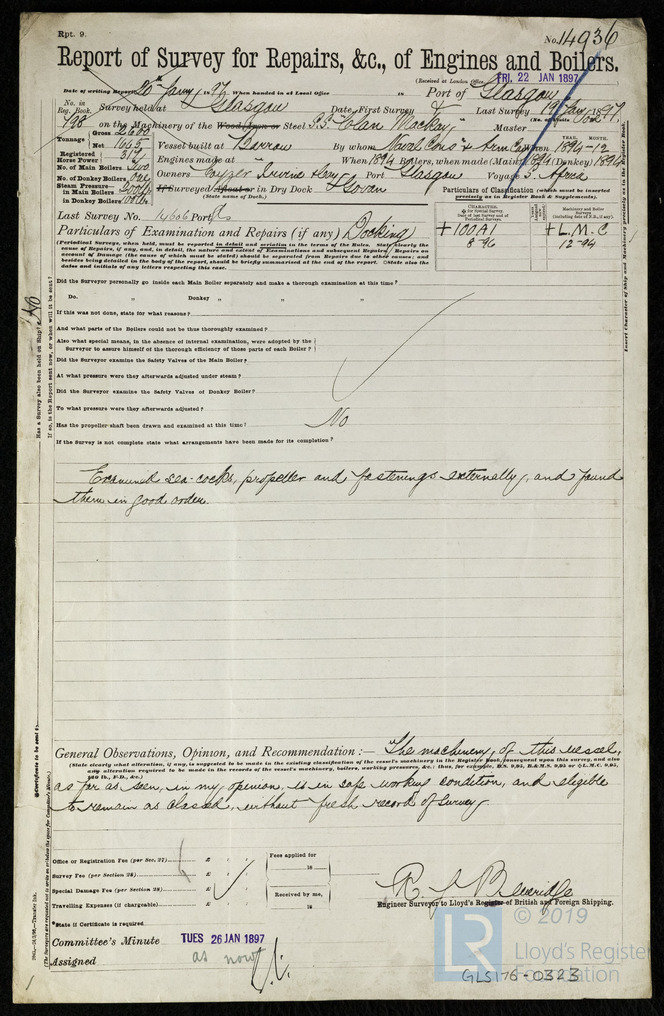 Rpt. 9.
No. 14936
Report of Survey for Repairs, &c., of Engines and Boilers.
(Received at London Office FRI. 22 JAN 1897
Date of writing Report 20th Jany 1897 When handed in at Local Office 18 Port of Glasgow
No. in Reg. Book. Survey held at Glasgow Date, First Survey & Last Survey 19 Jany 1897
798 on the Machinery of the Wood, Iron or Steel S.S. "Clan Mackay" Master (No. of Visits One)
Tonnage Gross 2600 Net 1665 Vessel built at Barrow By whom Naval Cons. & Arm. Co. When 1894-12
YEAR. MONTH.
Registered Horse Power 317 Engines made at " When 1894 Boilers, when made (Main) 1894 (Donkey) 1894
No. of Main Boilers two
No. of Donkey Boilers one Owners Cayzer Irvine & Co Port Glasgow Voyage S. Africa
Steam Pressure—
in Main Boilers 200 lb If Surveyed Afloat or in Dry Dock Govan
in Donkey Boilers 100 lb (State name of Dock.)
Particulars of Classification (which must be inserted precisely as in Register Book & Supplements).
CHARACTER.
for Special Survey.
Date of last Survey and of Periodical Surveys.
Machinery and Boiler Surveys
(including date of N.B., if any).
+100A1
8-96
+L.M.C
12-94
Last Survey No. 14606 Port Gls
Particulars of Examination and Repairs (if any) Docking
(Periodical Surveys, when held, must be reported in detail and seriatim in the terms of the Rules. State clearly the
cause of Repairs, if any, and, in detail, the nature and extent of Examinations and subsequent Repairs. Repairs on
account of Damage (the cause of which must be stated) should be separated from Repairs due to other causes; and
besides being detailed in the body of the report, should be briefly summarised at the end of the report. State also the
dates and initials of any letters respecting this case.
Did the Surveyor personally go inside each Main Boiler separately and make a thorough examination at this time?
Do. " Donkey " " "
If this was not done, state for what reasons?
And what parts of the Boilers could not be thus thoroughly examined?
Also what special means, in the absence of internal examination, were adopted by the
Surveyor to assure himself of the thorough efficiency of those parts of each Boiler?
Did the Surveyor examine the Safety Valves of the Main Boiler?
At what pressure were they afterwards adjusted under steam?
Did the Surveyor examine the Safety Valves of Donkey Boiler?
To what pressure were they afterwards adjusted?
Has the propeller-shaft been drawn and examined at this time? No
If the Survey is not complete state what arrangements have been made for its completion?
Examined sea-cocks, propeller and fastenings externally, and found
them in good order.
General Observations, Opinion, and Recommendation:— The machinery of this vessel,
(State clearly what alteration, if any, is suggested to be made in the existing classification of the vessel's machinery in the Register Book, consequent upon this survey, and also
any alteration required to be made in the records of the vessel's machinery, boilers, working pressures, &c.: thus, for example, B.S. 9,95, B.&M.S. 9,95 or L.M.C. 9,95,
140 lb., F.D., &c.)
as far as seen, in my opinion, is in safe working condition, and eligible
to remain as classed, without fresh record of Survey
Office or Registration Fee (per Sec. 27) £ : :
Survey Fee (per Section 28) £ : :
Special Damage Fee (per Section 28) £ : :
Travelling Expenses (if chargeable) £ : :
Fees applied for
18
Received by me,
18
*State if Certificate is required
R. J. Beveridge
Engineer Surveyor to Lloyd's Register of British and Foreign Shipping.
Committee's Minute TUES 26 JAN 1897
Assigned as now
LR
© 2019
Lloyd's Register
Foundation
GLS176-0323
Has a Survey also been held on Ship?
If so, is the Report sent now, or when will it be sent?
No
Insert Character of Ship and Machinery precisely as in the Register Book
Certificate to be sent to
(The Surveyors are requested not to write on or below the space for Committee's Minute.)
Transfer Ink.